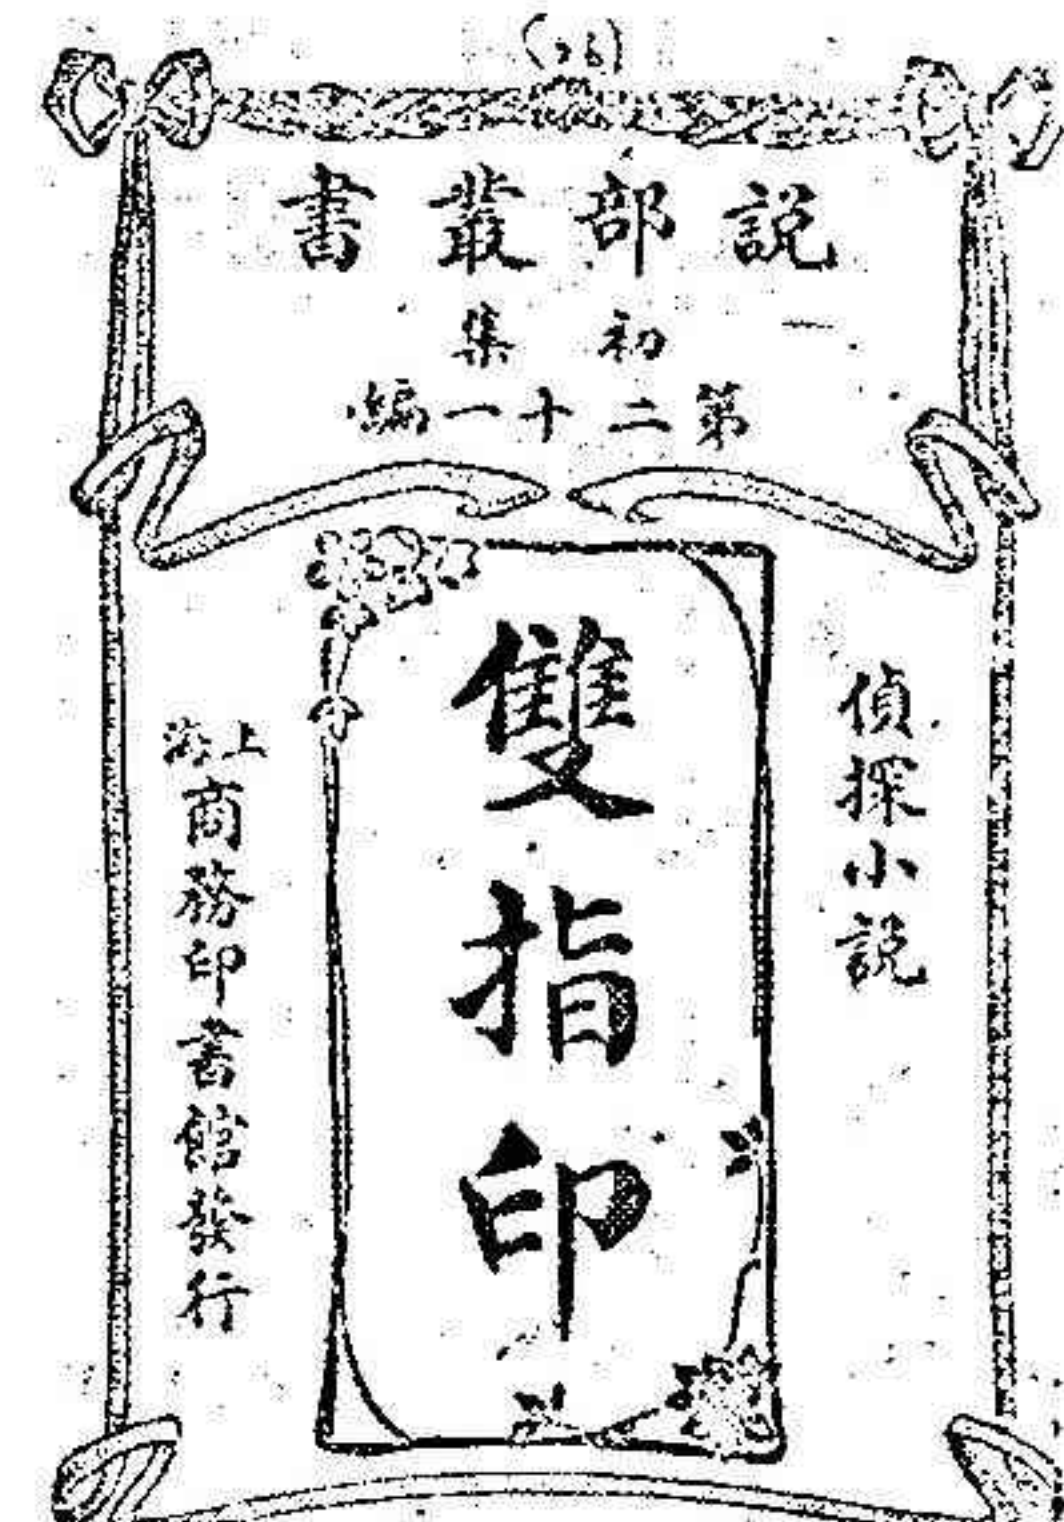 説部叢書
初集
第二十一編
偵探小説
雙指印
上海商務印書館發行